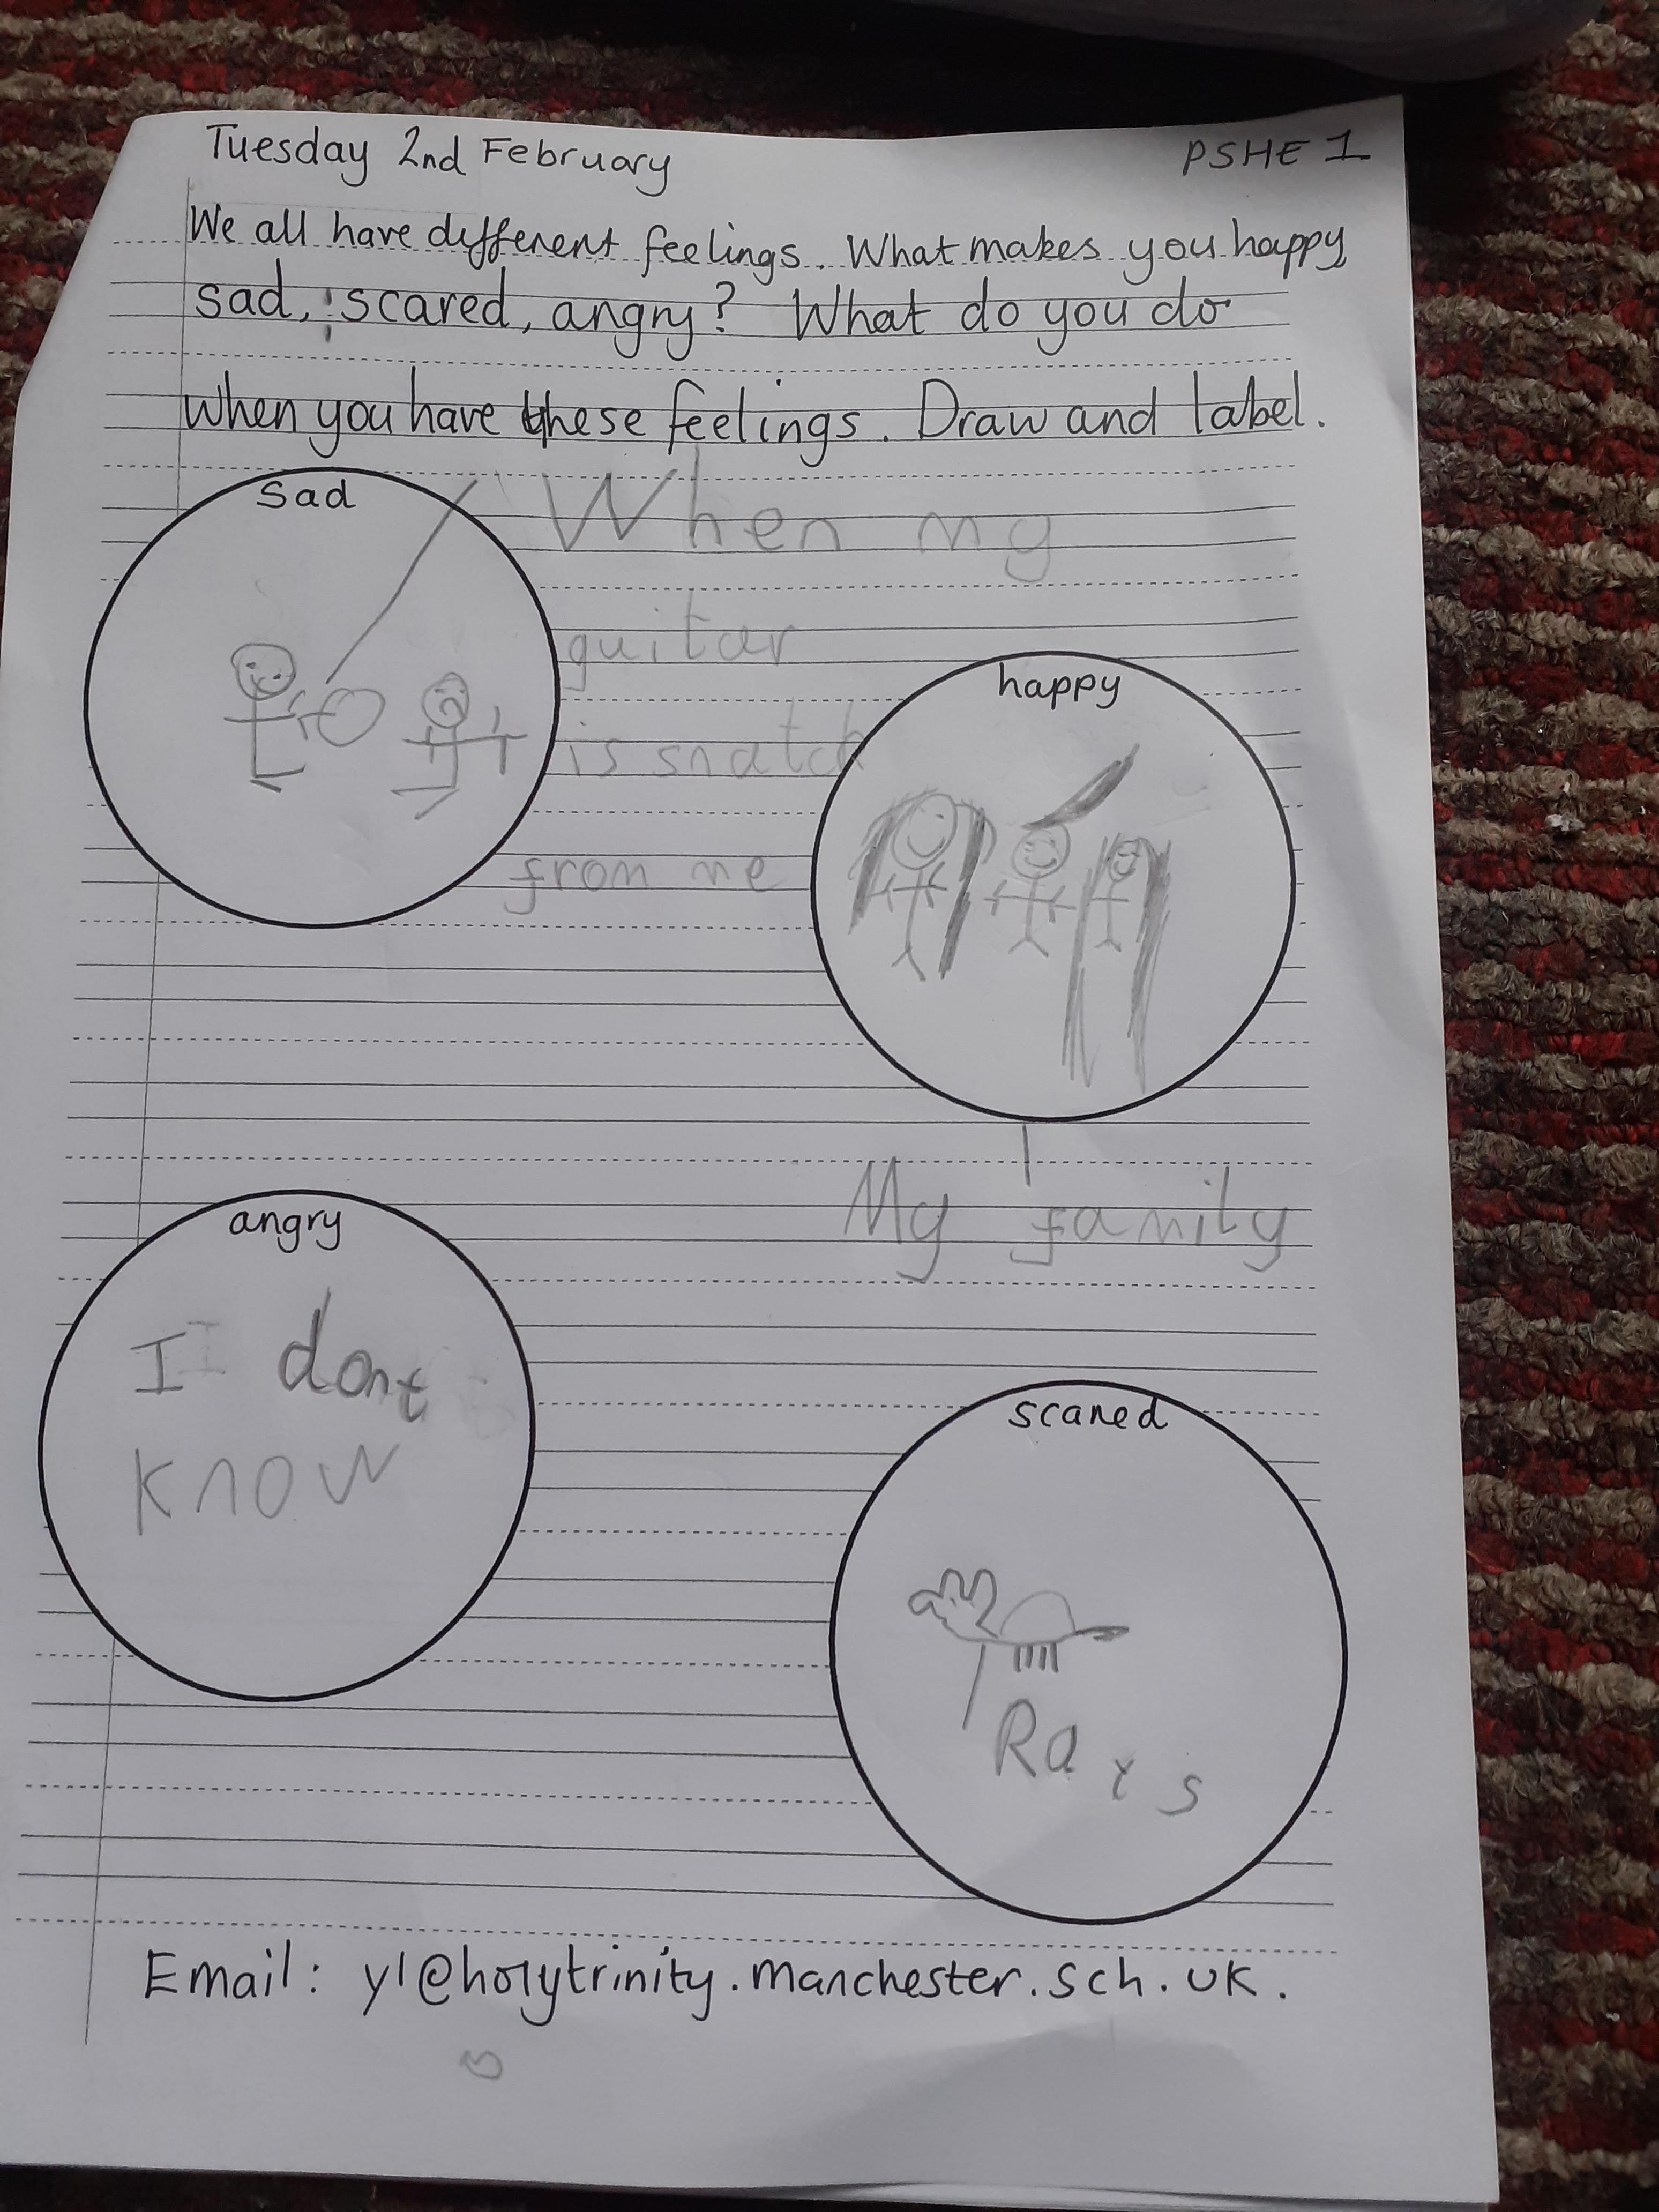 Tuesday 2nd February
PSHE 1
We all have different feelings. What makes you happy
sad, scared, angry? What do you do
when you have these feelings. Draw and label.
sad
When my
guitar
is snatch
from me
happy
My family
angry
I dont
know
scared
Rats
Email: y1@holytrinity.manchester.sch.uk.